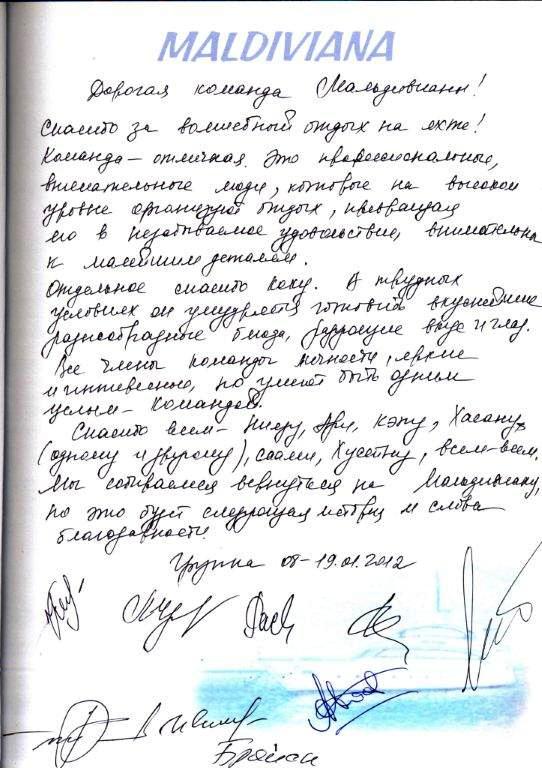 MALDIVIANA
Дорогая команда Мальдивианы!
Спасибо за волшебный отдых на яхте!
Команда – отличная. Это профессиональные,
внимательные люди, которые на высоком
уровне организуют отдых, превращая
его в незабываемое удовольствие, внимательны
к малейшим деталям.
Отдельное спасибо коку. В трудных
условиях он умудряется готовить вкуснейшие
разнообразные блюда, радующие вкус и глаз.
Все члены команды личности, яркие
и интересные, но умеют быть одним
целым – командой.
Спасибо всем – Кэпу, Хасану,
(одному и другому), Хусейну, всем-всем.
Мы собираемся вернуться на Мальдивиану,
но это будет следующая история и слова
благодарности.
Группа 08-19.01.2012